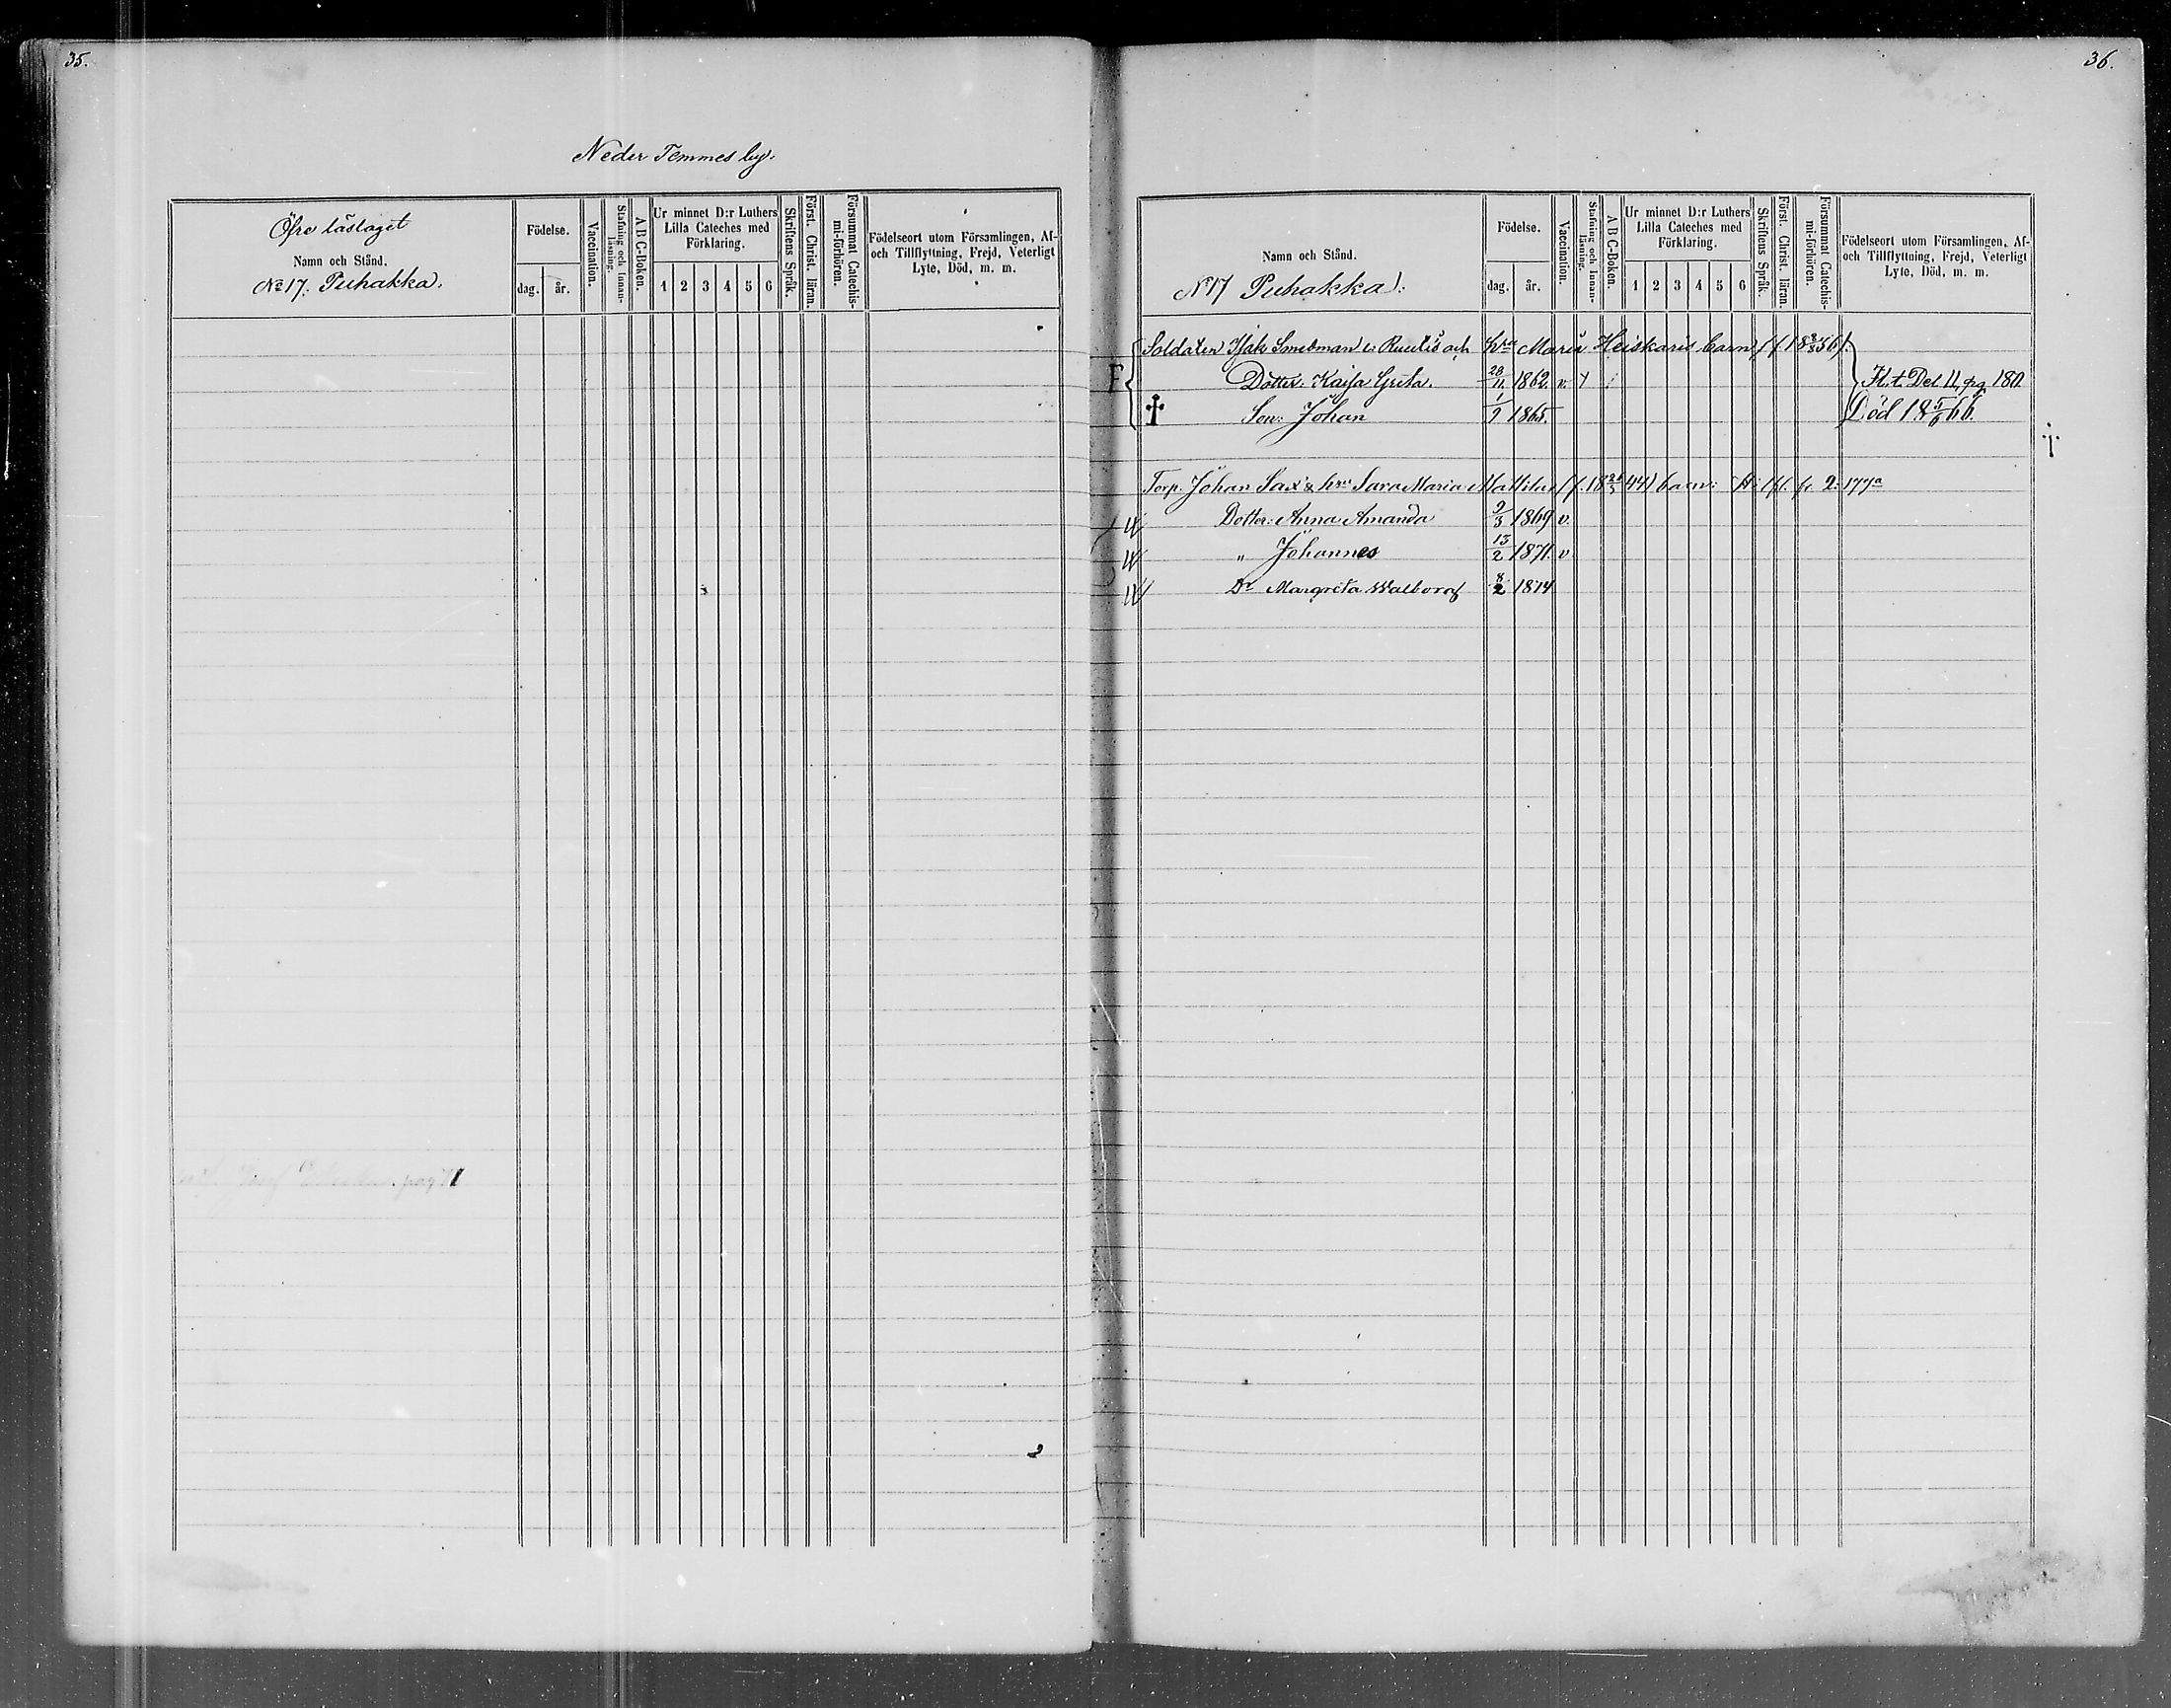 35.
Neder Temmes by.
Öfre läslaget
Namn och Stånd.
No 17. Puhakka.
Födelse.
dag. år.
Vaccination.
Stafning och Innanläsning.
A B C-Boken.
Ur minnet D:r Luthers Lilla Cateches med Förklaring.
1 2 3 4 5 6
Skriftens Språk.
Först. Christ. läran.
Försummat Catechismi-förhören.
Födelseort utom Församlingen, Af- och Tillflyttning, Frejd, Veterligt Lyte, Död, m. m.
pag
36.
Namn och Stånd.
No 17 Puhakka.
Födelse.
dag. år.
Vaccination.
Stafning och Innanläsning.
A B C-Boken.
Ur minnet D:r Luthers Lilla Cateches med Förklaring.
1 2 3 4 5 6
Skriftens Språk.
Först. Christ. läran.
Försummat Catechismi-förhören.
Födelseort utom Församlingen, Af- och Tillflyttning, Frejd, Veterligt Lyte, Död, m. m.
Soldaten Isak och hru Maria Heiskaris barn
F Dotter: Kaisa Greta. 28/11 1862. v. K.t. Del II, pag 180
† Son: Johan 1/2 1865. Död 18 5/6 66.
Torp. Johan Sax & hru Sara Maria barn: 177a
Dotter: Anna Amanda 9/3 1869 v.
" Johannes 13/2 1871. v
Dr Margreta Walborg 8/2 1874